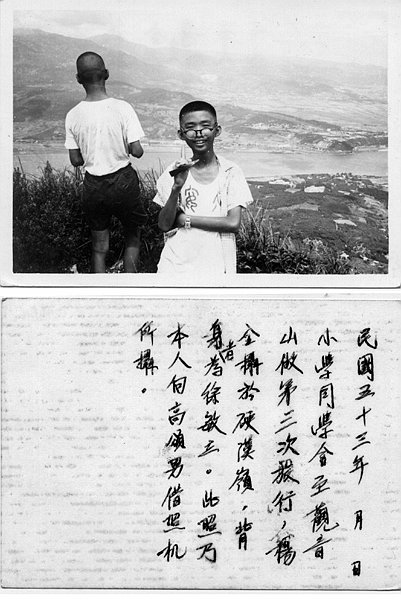 民國五十三年 月 日
小學同學會至觀音
山做第三次旅行，楊
攝於硬漢嶺，背
身者為徐敏立。此照乃
本人向高男借照机
所攝。